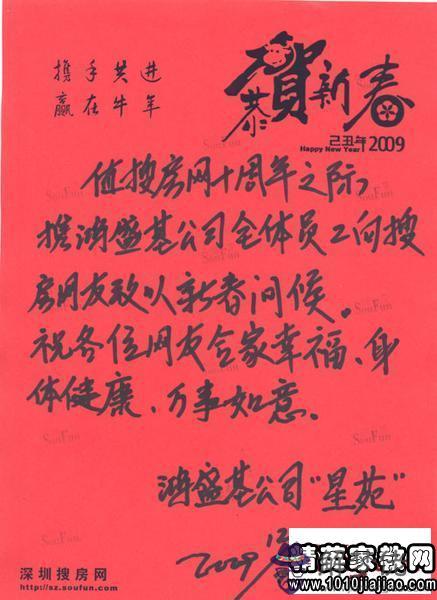 携手共进
赢在牛年
恭贺新春
己丑年 2009
Happy New Year!
值搜房网十周年之际,
携鸿盛基公司全体员工向搜
房网友致以新春问候。
祝各位网友合家幸福、身
体健康、万事如意。
鸿盛基公司“星苑”
2009 12
深圳搜房网
http://sz.soufun.com
精英家教网
www.1010jiajiao.com
SouFun